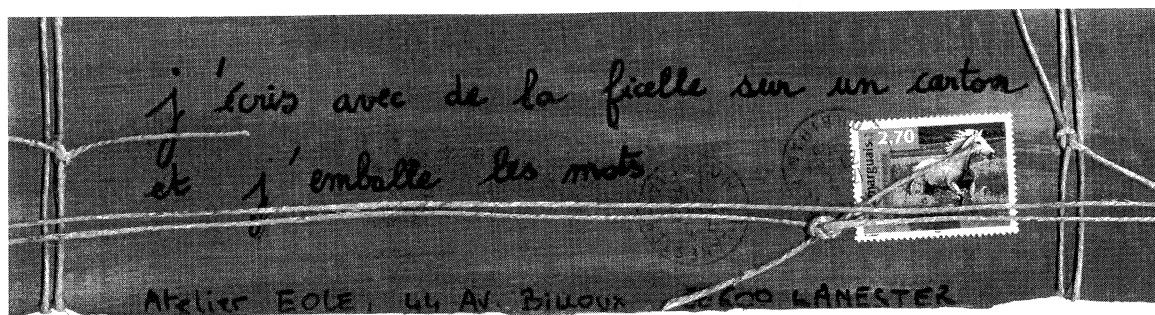 j'écris avec de la ficelle sur un carton
et j'emballe les mots
2,70
Atelier EOLE, 44 Av. Billoux 56600 LANESTER